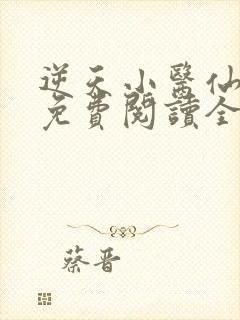 逆天小醫仙
免費閱讀全
蔡晋